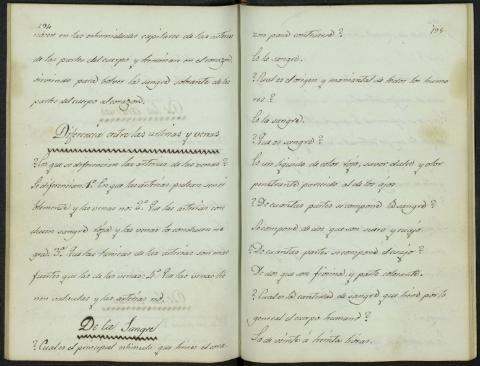 194
nacen en las extremidades capilares de las arterias
de las partes del cuerpo y terminan en el corazon
sirviendo para bolver la sangre sobrante de las
partes del cuerpo al corazon.
Diferencia entre las arterias y venas
? En que se diferencian las arterias de las venas?
Se diferencian 1º En que las arterias pulsan sensi
blemente y las venas no: 2º Que las arterias con
ducen sangre roja y las venas la conducen ne
gra. 3º Que las tunicas de las arterias son mas
fuertes que las de las venas; 4º Que las venas tie
nen valvulas y las arterias no.
De la Sangre
? Cual es el principal estimulo que tiene el cora-
195
zon para contraerse?
La la sangre.
? Cual es el origen y manantial de todos los humo
res?
La la sangre.
? Que es sangre?
Es un liquido de color rojo, sabor dulce y olor
penetrante parecido al de los ajos.
? De cuantas partes se compone la sangre?
Se compone de dos que son suero y cuajo.
? De cuantas partes se compone el cuajo?
De dos que son fibrina y parte colorante.
? Cual es la cantidad de sangre que tiene por lo
general el cuerpo humano?
La de veinte á treinta libras.